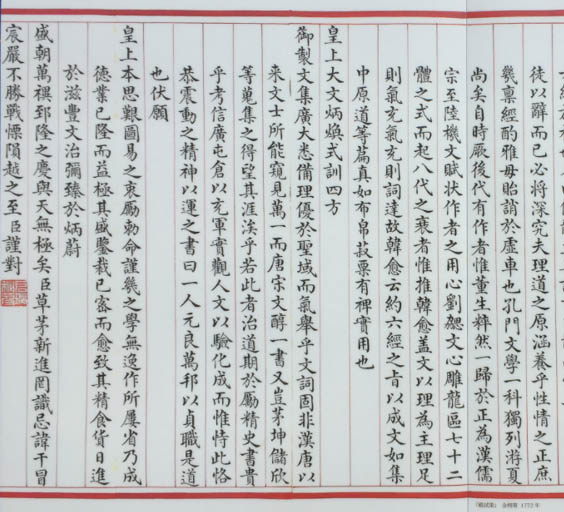 徒以辭而已必將深究夫理道之原涵養乎性情之正庶
幾稟經酌雅毋貽誚於虛車也孔門文學一科獨列游夏
尚矣自時厥後代有作者惟董生粹然一歸於正為漢儒
宗至陸機文賦狀作者之用心劉勰文心雕龍區七十二
體之式而起八代之衰者惟推韓愈蓋文以理為主理足
則氣充氣充則詞達故韓愈云約六經之旨以成文如集
中原道等萹真如布帛菽粟有裨實用也
皇上大文炳煥式訓四方
御製文集廣大悉備理優於聖域而氣舉乎文詞固非漢唐以
来文士所能窺見萬一而唐宋文醇一書又豈茅坤儲欣
等蒐集之得望其涯涘乎若此者治道期於勵精史書貴
乎考信廣屯倉以充軍實觀人文以驗化成而惟恃此恪
恭震動之精神以運之書曰一人元良萬邦以貞職是道
也伏願
皇上本思艱圖易之衷勵勅命謹幾之學無逸作所屢省乃成
德業已隆而益極其盛鑒裁已審而愈致其精食貨日進
於滋豐文治彌臻於炳蔚
盛朝萬禩郅隆之慶與天無極矣臣草茅新進罔識忌諱干冒
宸嚴不勝戰慄隕越之至臣謹對
『殿試策』 金榜筆 1772年